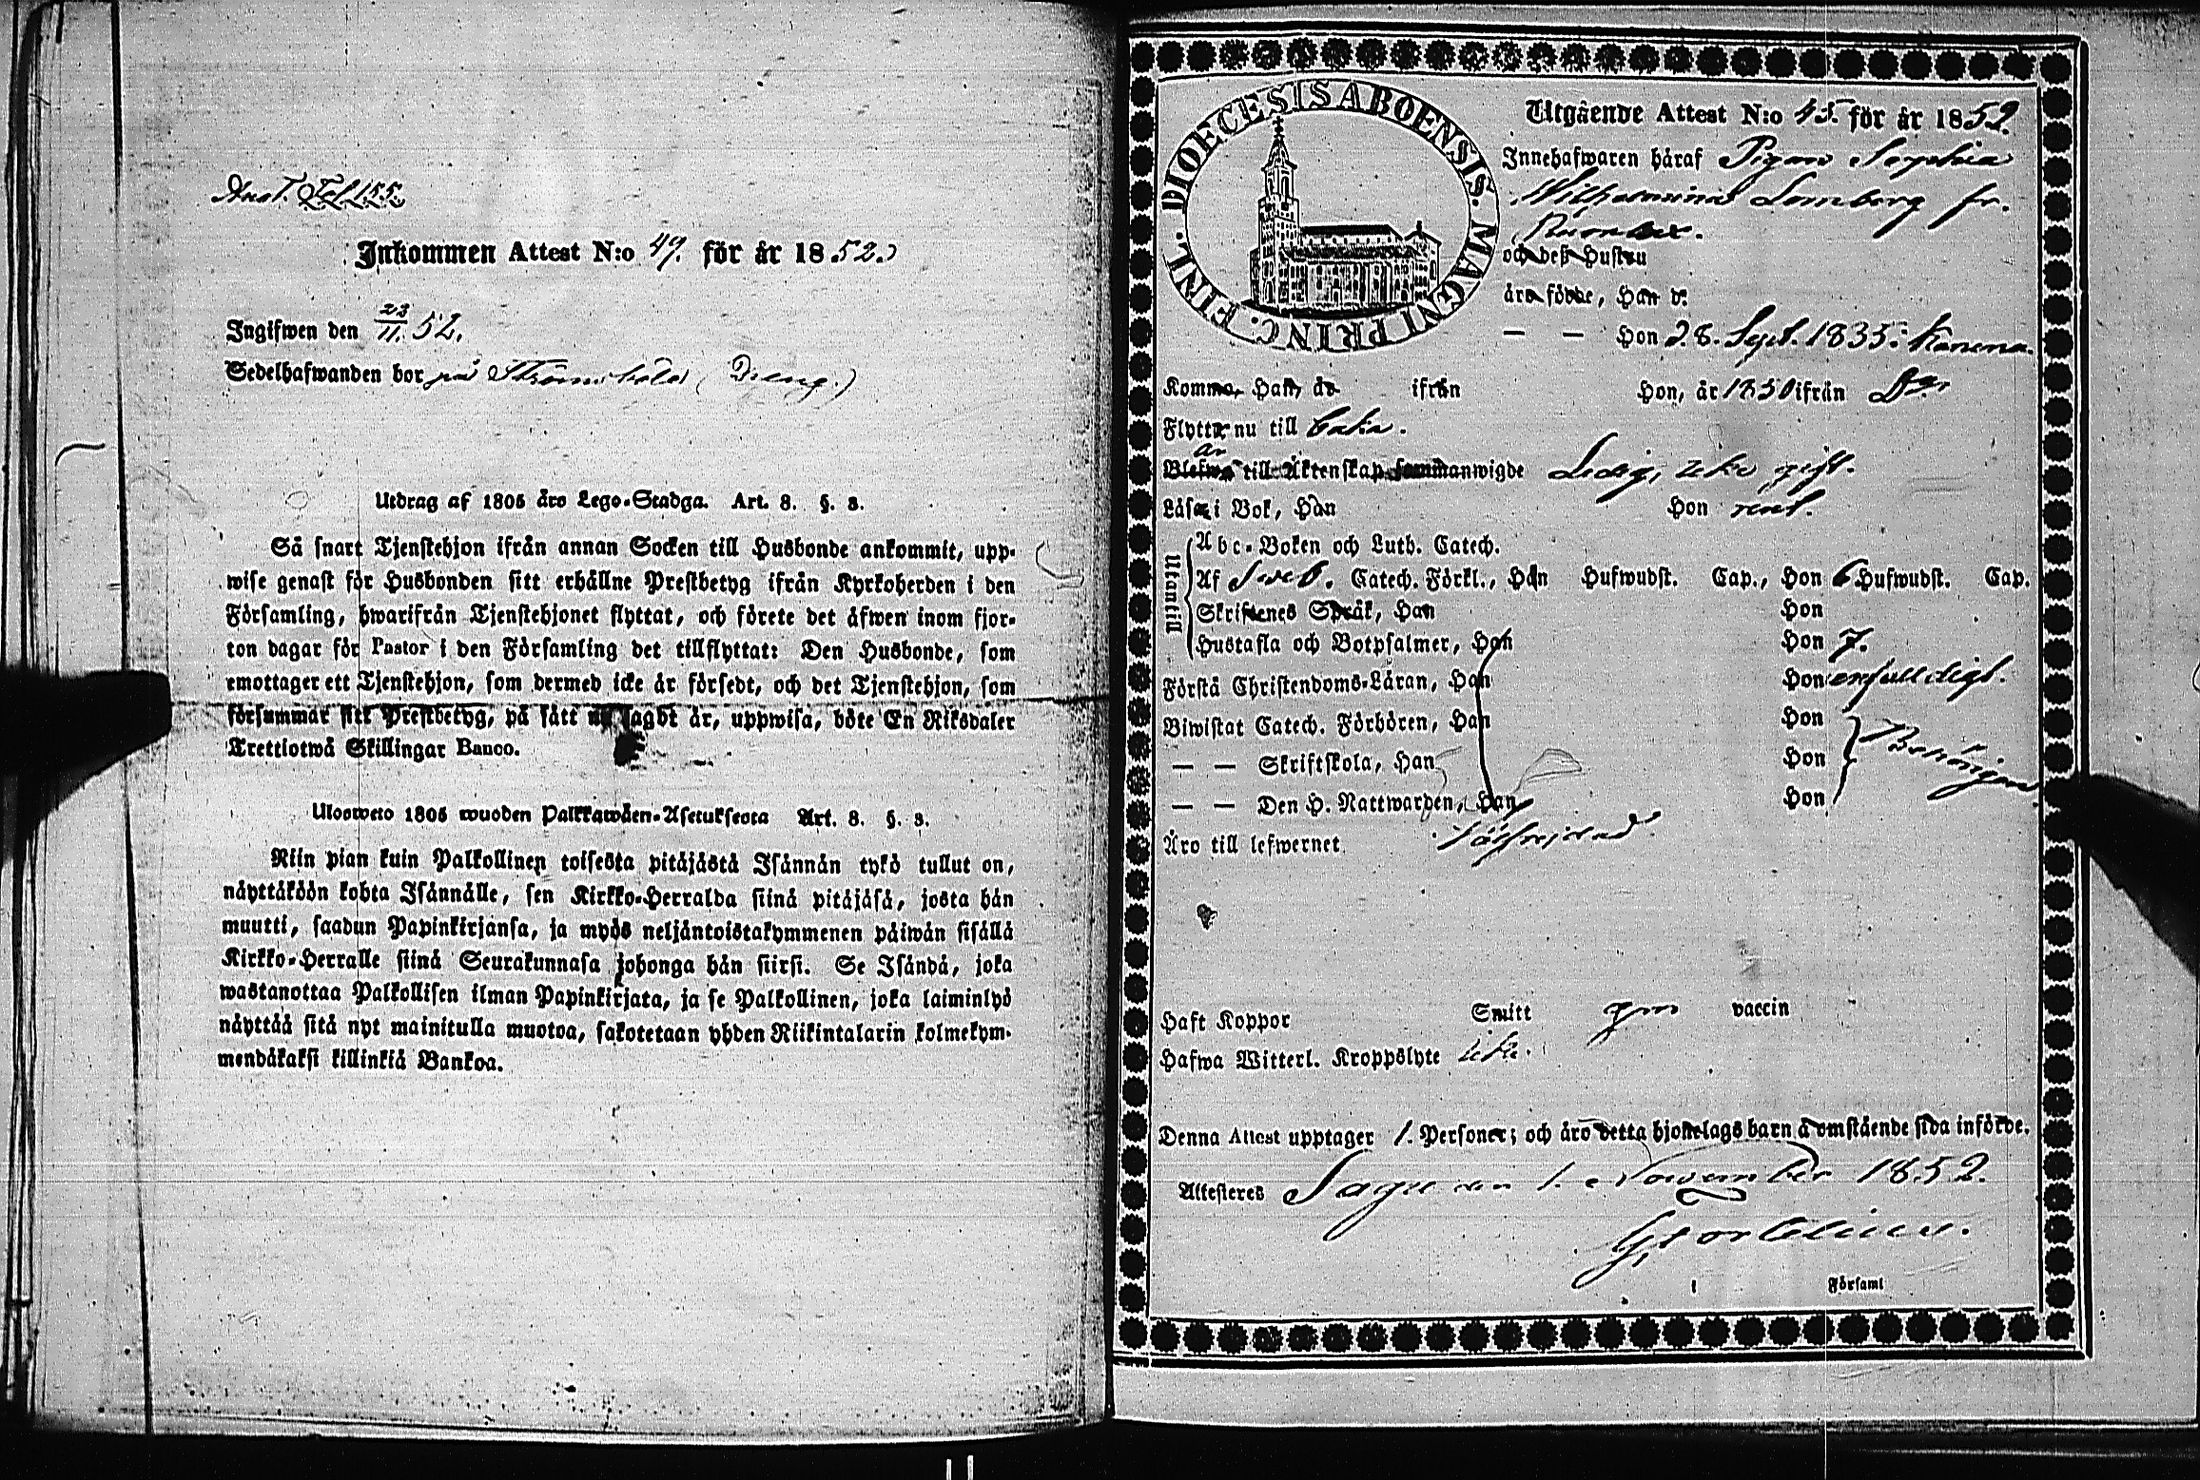 Ant. Fol 155.
Inkommen Attest N:o 49. för år 1852.
Ingifwen den 23/11. 52.
Sedelhafwanden bor på Strömsholm
Utdrag af 1805 års Lego-Stadga. Art. 8. §. 8.
Så snart Tjenstehjon ifrån annan Socken till Husbonde ankommit, upp-
wise genast för Husbonden sitt erhållne Prestbetyg ifrån Kyrkoherden i den
Församling, hwarifrån Tjenstehjonet flyttat, och förete det äfwen inom fjor-
ton dagar för Pastor i den Församling det tillflyttat: Den Husbonde, som
emottager ett Tjenstehjon, som dermed icke är försedt, och det Tjenstehjon, som
försummar sitt Prestbetyg, på sätt nu sagdt är, uppwisa, böte En Riksdaler
Trettiotwå Skillingar Banco.
Ulosweto 1805 wuoden Palkkawäen-Asetuksesta Art. 8. §. 8.
Niin pian kuin Palkollinen toisesta pitäjästä Isännän tykö tullut on,
näyttäköön kohta Isännälle, sen Kirkko-Herralda siinä pitäjäsä, josta hän
muutti, saadun Papinkirjansa, ja myös neljäntoistakymmenen päiwän sisällä
Kirkko-Herralle siinä Seurakunnasa johonga hän siirsi. Se Isändä, joka
wastanottaa Palkollisen ilman Papinkirjata, ja se Palkollinen, joka laiminlyö
näyttää sitä nyt mainitulla muotoa, sakotetaan yhden Riikintalarin kolmekym-
mendäkaksi killinkiä Bankoa.
DIOECESIS ABOENSIS. MAGNI PRINC. FINL.
Utgående Attest N:o 45. för år 1852.
Innehafwaren häraf Pigan Sophia
Wilhelmina Lemberg fr.
och deß Hustru
äro födde, Han d.
— — Hon 28. Sept. 1835. Karuna.
Komme, Han, år ifrån Hon, år 1850 ifrån Do
Flytta nu till Bakia.
är
Blefwo till Äktenskap sammanwigde Ledig, icke gift.
Läsa i Bok, Han Hon rent.
Utantill
Abc-Boken och Luth. Catech.
Af Sveb. Catech. Förkl., Han Hufwudst. Cap., Hon 6 Hufwudst. Cap.
Skriftenes Språk, Han Hon
Hustafla och Botpsalmer, Han Hon 7.
Förstå Christendoms-Läran, Han Hon enfalldigt.
Biwistat Catech. Förhören, Han Hon
— — Skriftskola, Han Hon Behörigen
— — Den H. Nattwarden, Han Hon
Äro till lefwernet wälfrejdad
Haft Koppor Smitt gm vaccin
Hafwa Witterl. Kroppslyte icke.
Denna Attest upptager 1. Personer; och äro detta hjonelags barn å omstående sida införde.
Attesteres Sagu den 1. November 1852.
i Församl